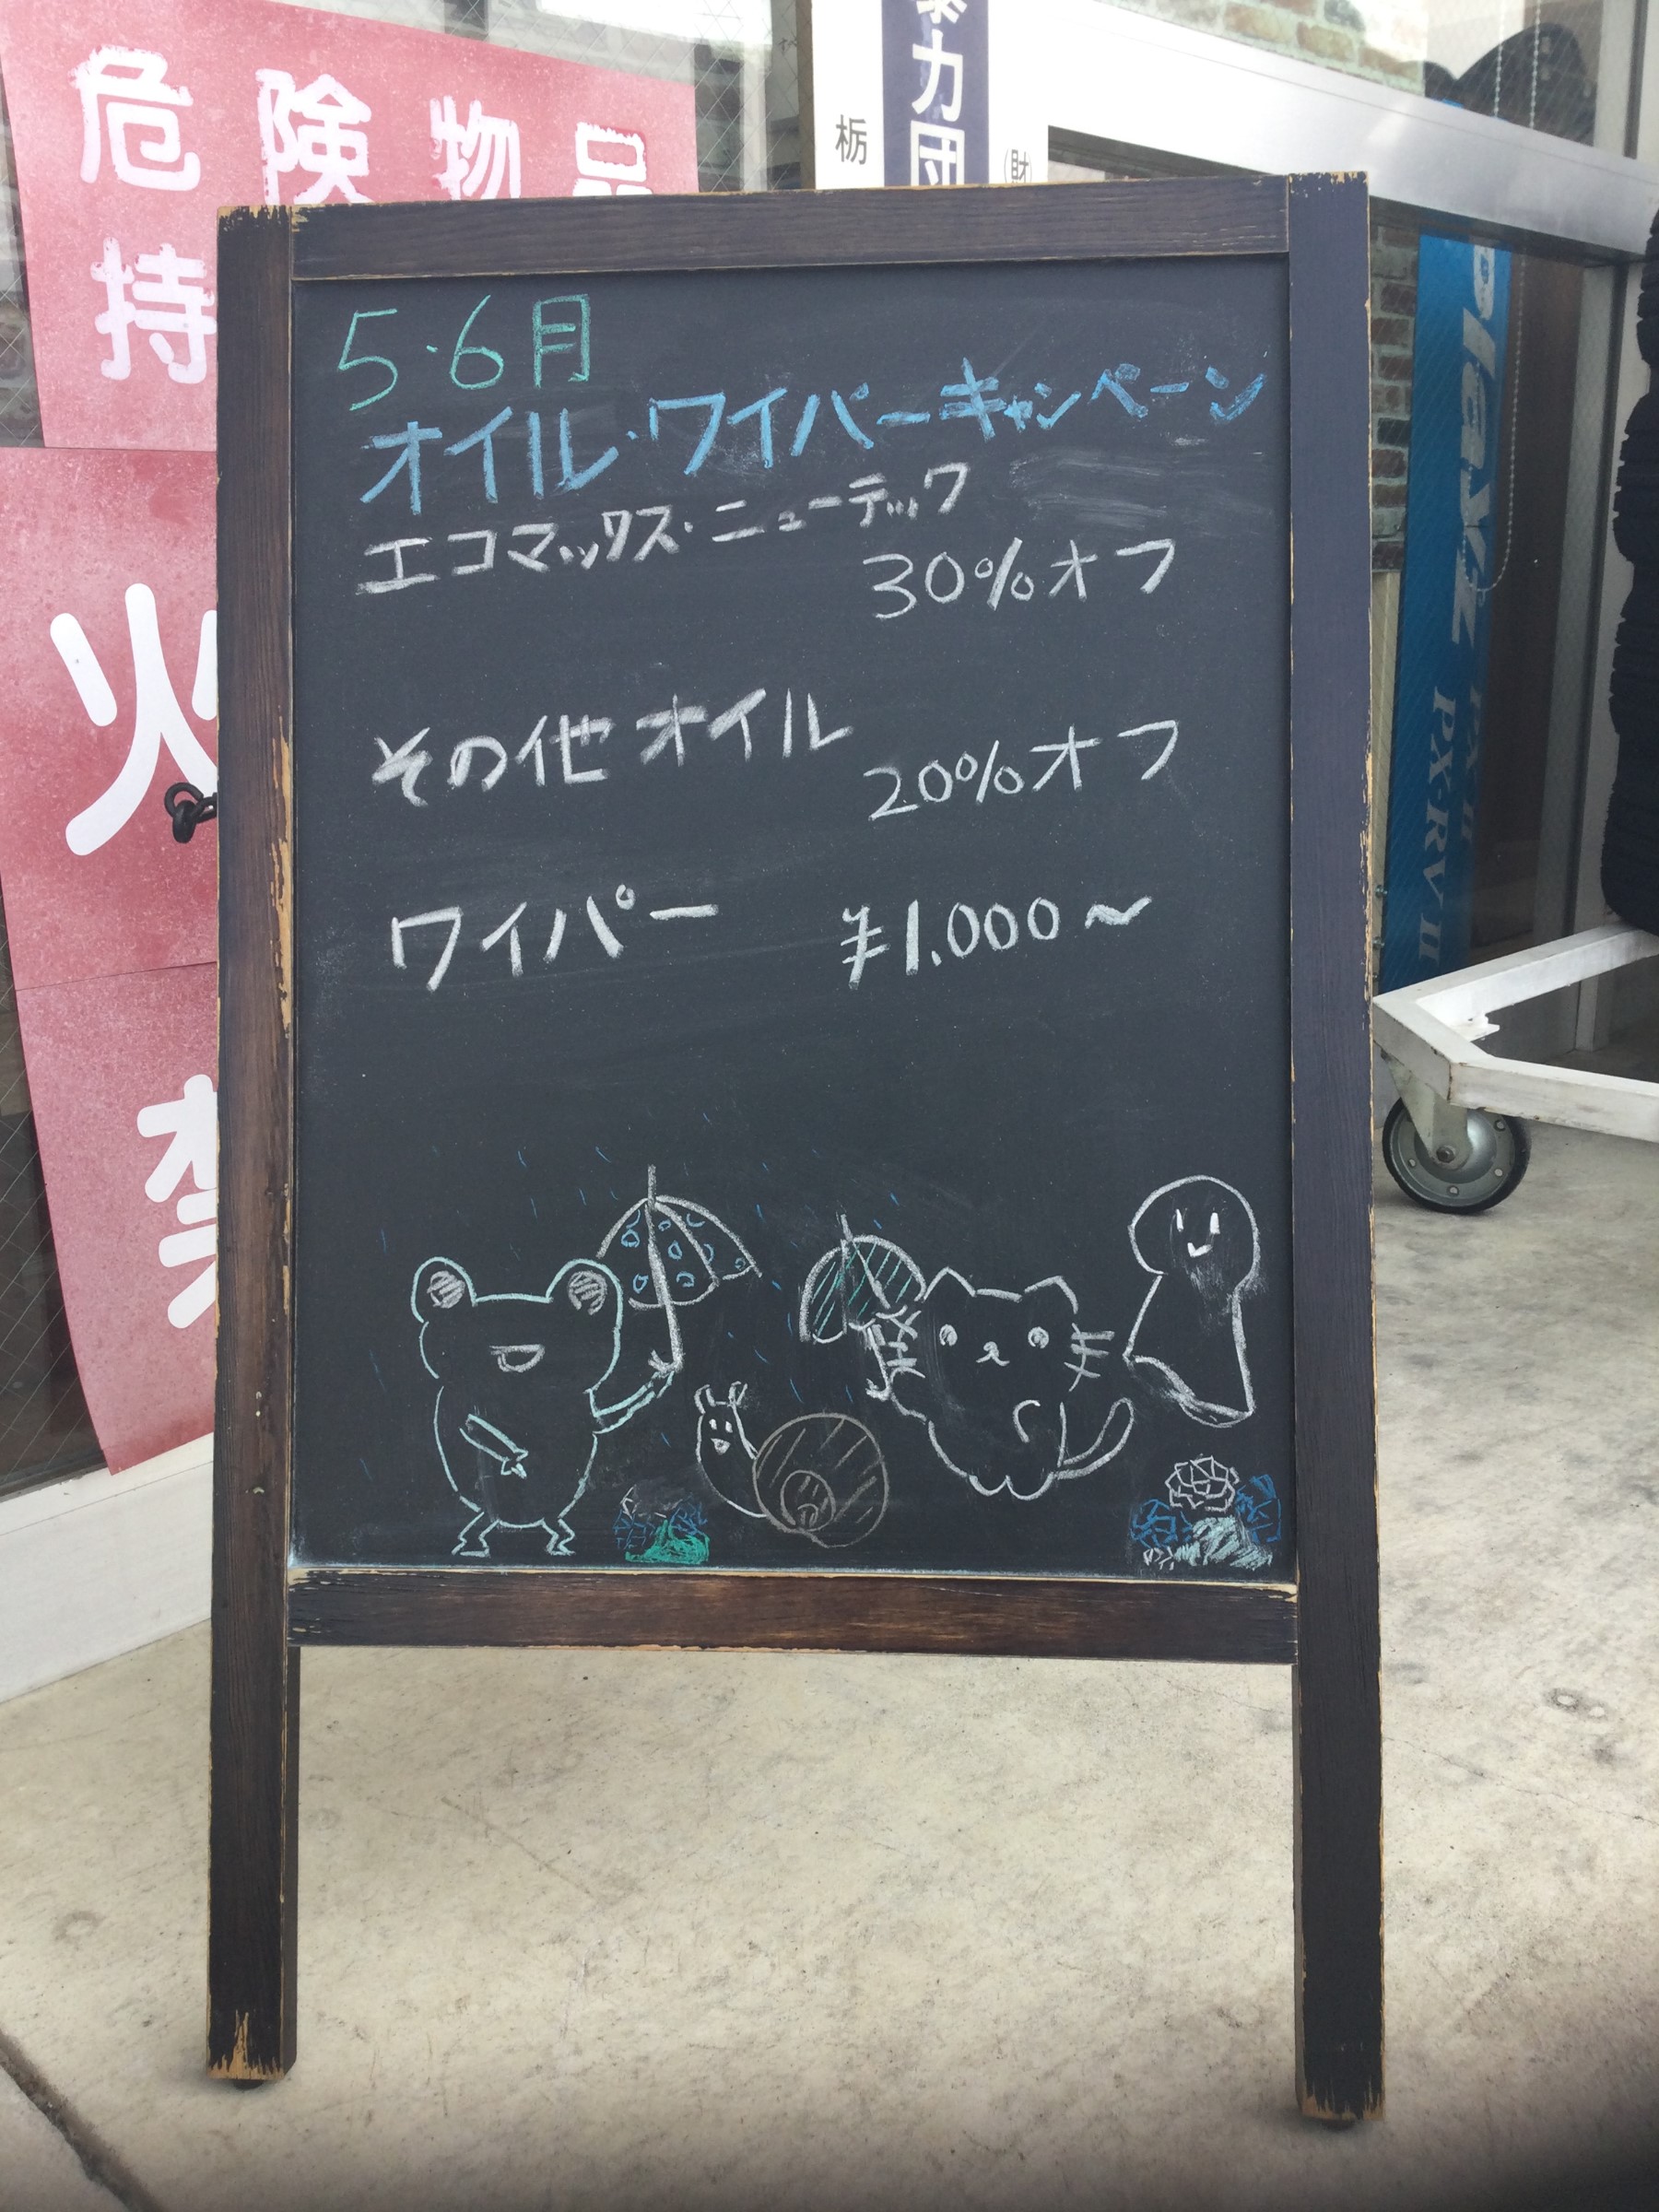 危険物品
持
火
禁
栃
暴力団
(財
5・6月
オイル・ワイパーキャンペーン
エコマックス・ニューテック
30%オフ
その他オイル
20%オフ
ワイパー ¥1.000～
Playz
PX-RVII